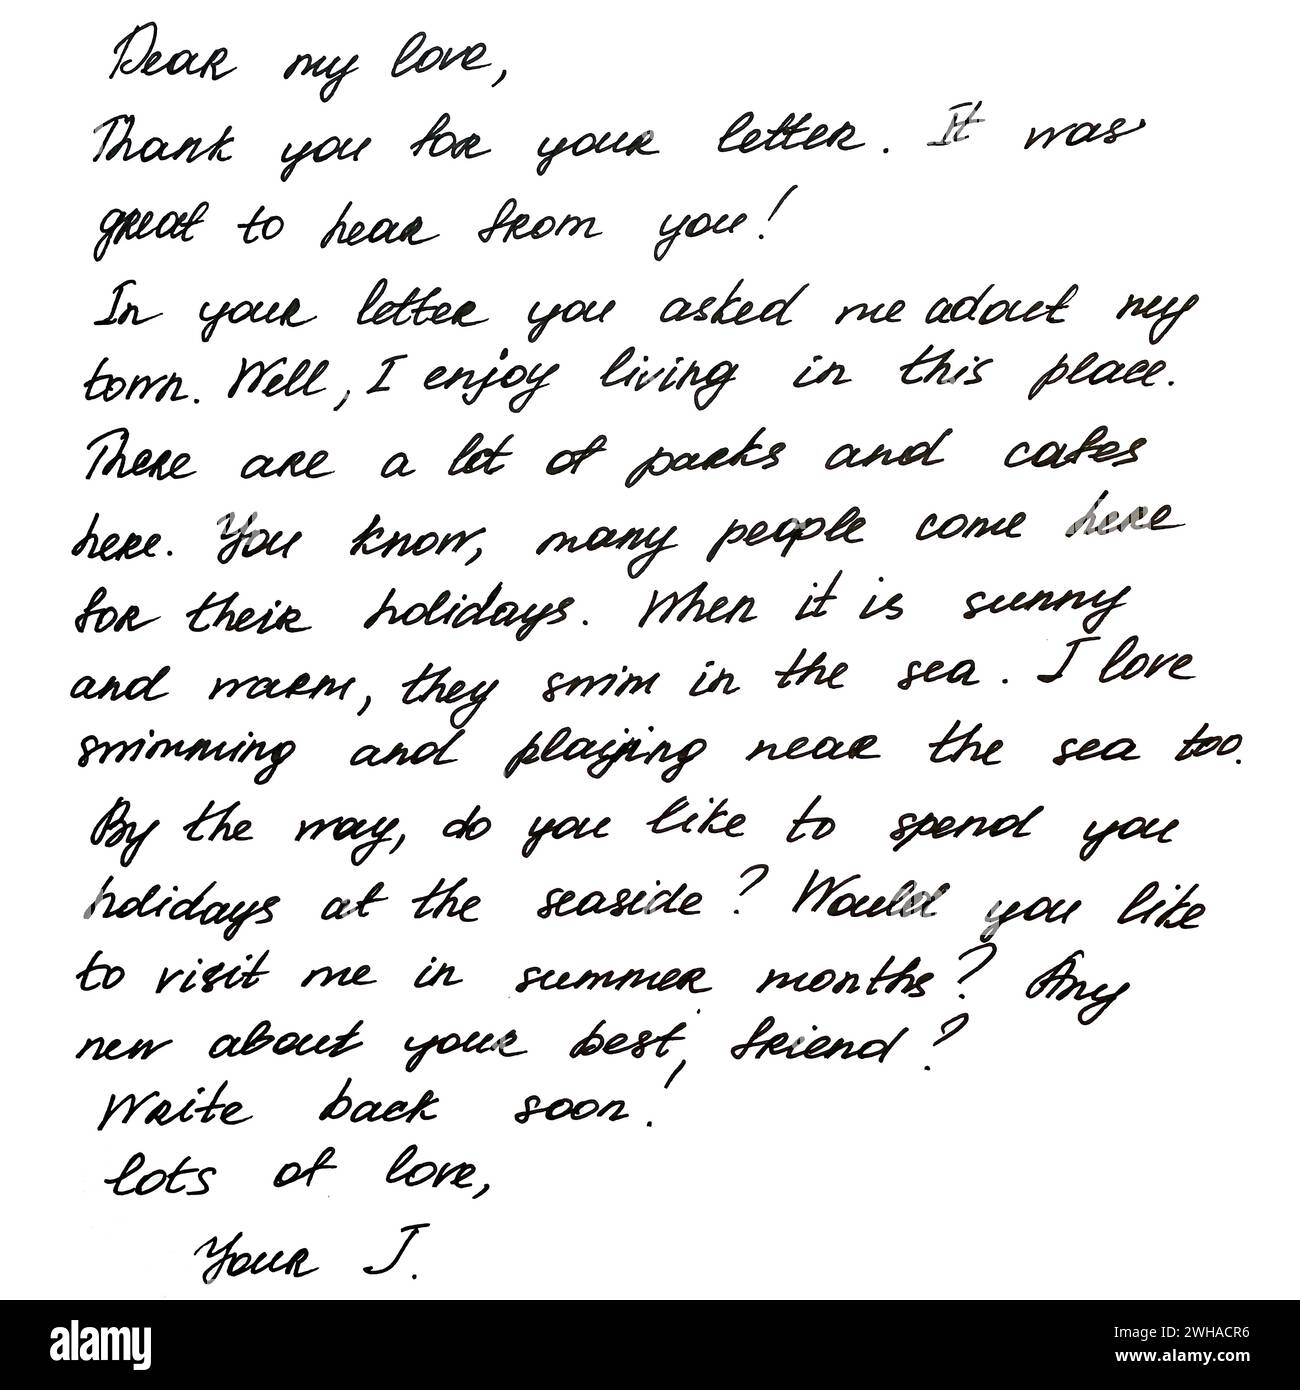 Dear my love,
Thank you for your letter. It was
great to hear from you!
In your letter you asked me adout my
town. Well, I enjoy living in this place.
There are a lot of parks and cafes
here. You know, many people come here
for their holidays. When it is sunny
and warm, they swim in the sea. I love
swimming and playing near the sea too.
By the way, do you like to spend you
holidays at the seaside? Would you like
to visit me in summer months? Any
new about your best, friend?
Write back soon!
Lots of love,
Your J.
alamy
Image ID: 2WHACR6
www.alamy.com